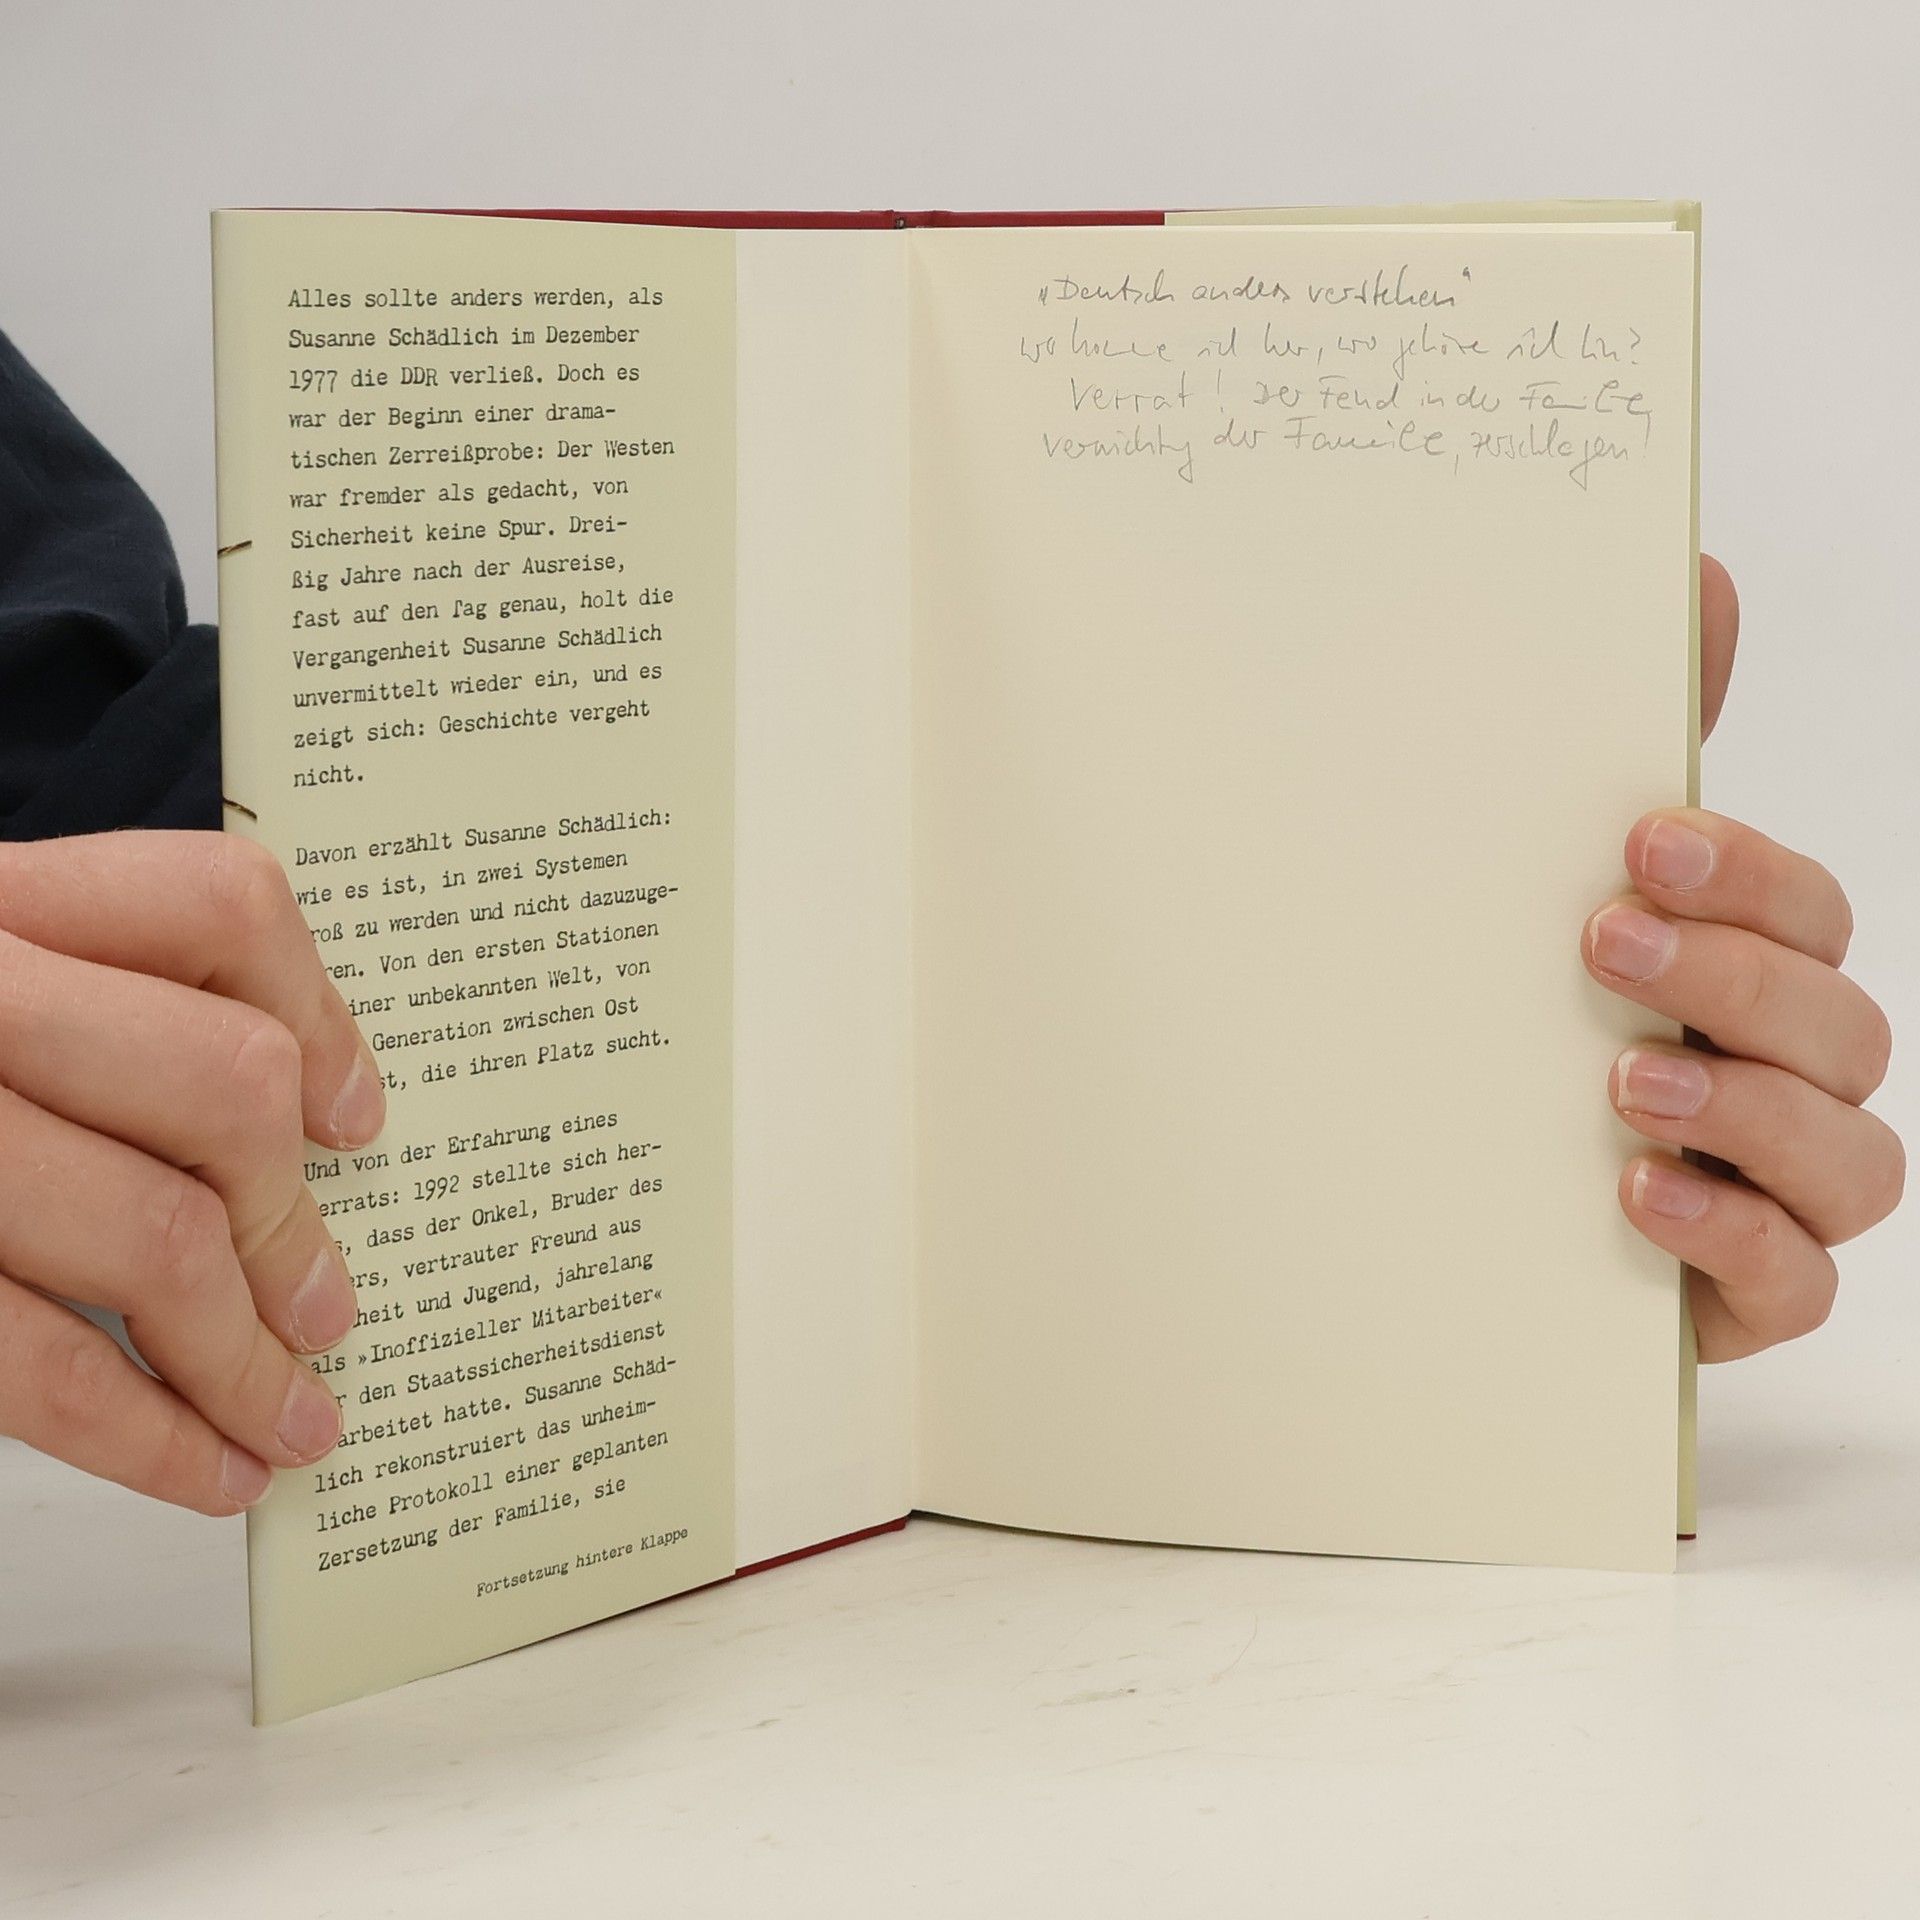 Alles sollte anders werden, als
Susanne Schädlich im Dezember
1977 die DDR verließ. Doch es
war der Beginn einer drama-
tischen Zerreißprobe: Der Westen
war fremder als gedacht, von
Sicherheit keine Spur. Drei-
ßig Jahre nach der Ausreise,
fast auf den Tag genau, holt die
Vergangenheit Susanne Schädlich
unvermittelt wieder ein, und es
zeigt sich: Geschichte vergeht
nicht.
Davon erzählt Susanne Schädlich:
wie es ist, in zwei Systemen
roß zu werden und nicht dazuzuge-
ren. Von den ersten Stationen
iner unbekannten Welt, von
Generation zwischen Ost
st, die ihren Platz sucht.
Und von der Erfahrung eines
errats: 1992 stellte sich her-
s, dass der Onkel, Bruder des
ers, vertrauter Freund aus
heit und Jugend, jahrelang
als »Inoffizieller Mitarbeiter«
r den Staatssicherheitsdienst
arbeitet hatte. Susanne Schäd-
lich rekonstruiert das unheim-
liche Protokoll einer geplanten
Zersetzung der Familie, sie
Fortsetzung hintere Klappe
„Deutsch anders verstehen"
wo komme ich her, wo gehöre ich hin?
Verrat! Der Feind in der Familie,
Vernichtung der Familie, zerschlagen!